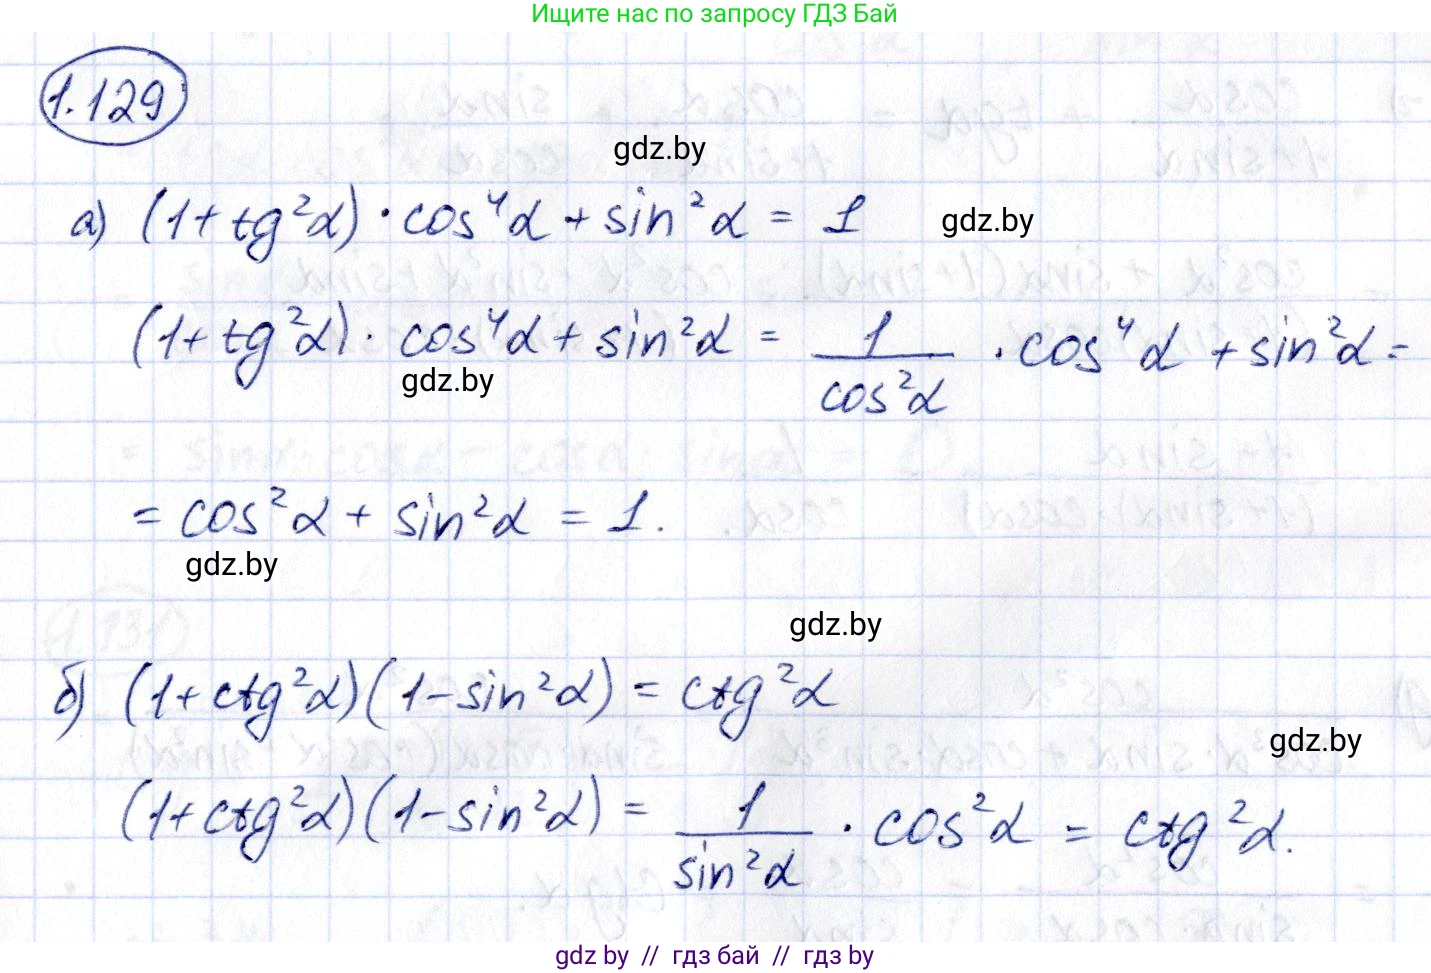 Ищите нас по запросу ГДЗ Бай
1.129
gdz.by
а) (1+tg²α)·cos⁴α+sin²α = 1
gdz.by
(1+tg²α)·cos⁴α+sin²α = 1/cos²α ·cos⁴α+sin²α=
gdz.by
= cos²α + sin²α = 1.
gdz.by
gdz.by
б) (1+ctg²α)(1-sin²α) = ctg²α
gdz.by
(1+ctg²α)(1-sin²α) = 1/sin²α · cos²α = ctg²α.
gdz.by // гдз бай // гдз by